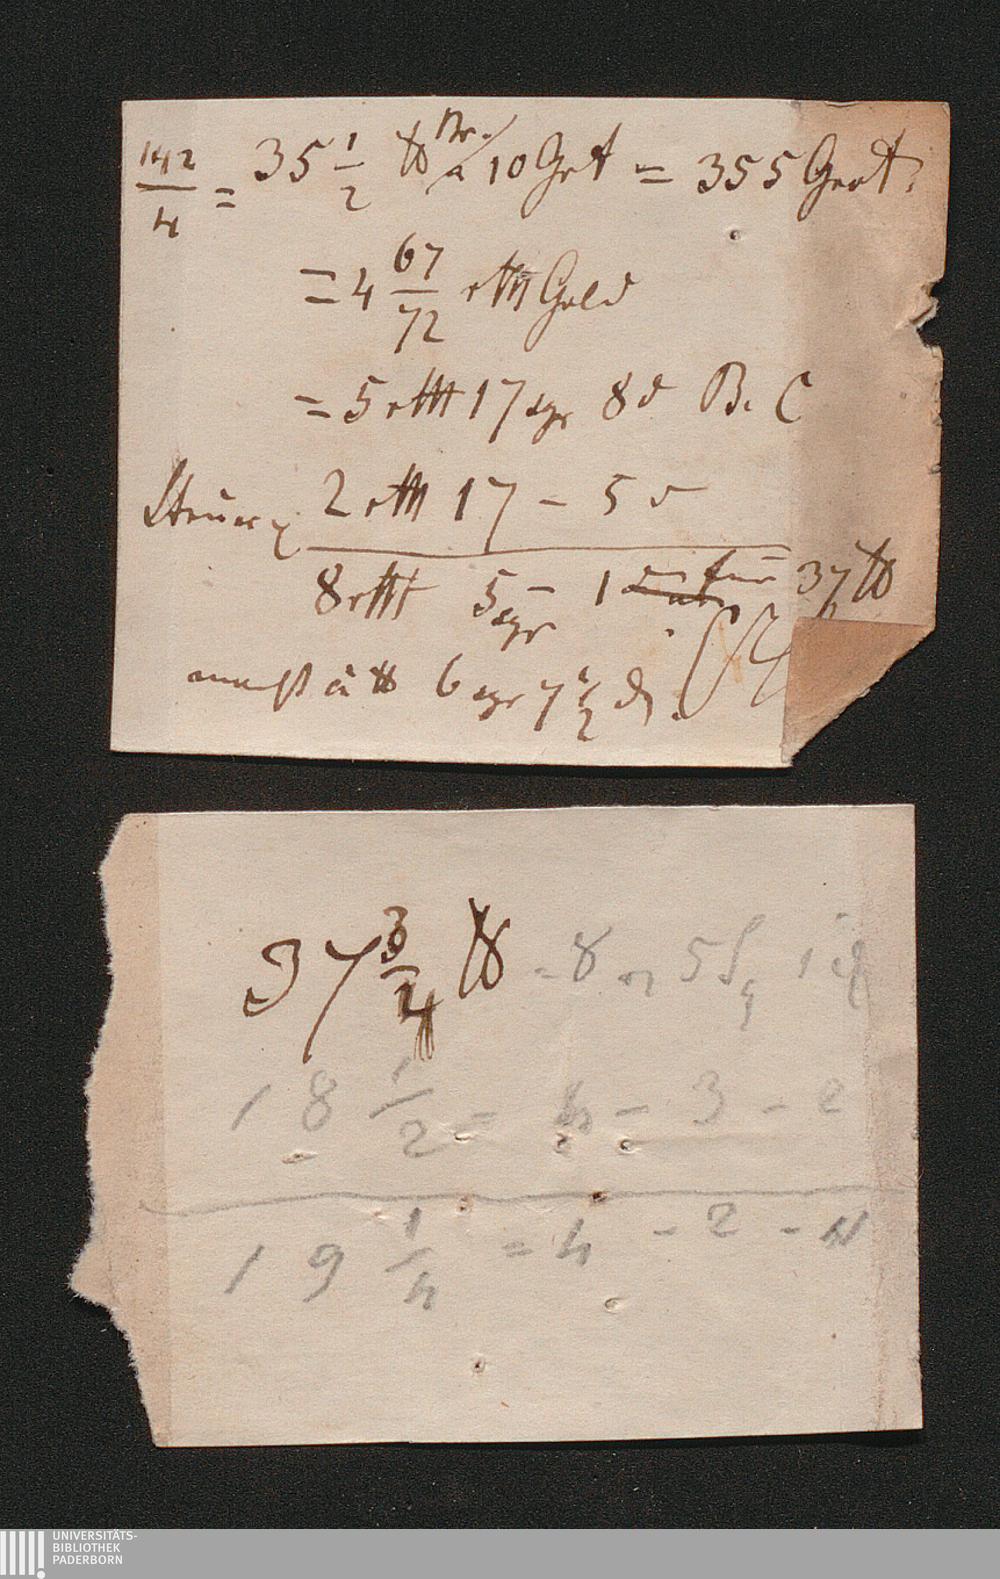 142/4 = 35 1/2 ℔ Br. a 10 Grt = 355 Grot.
= 4 67/72 rth Gold
= 5 rth 17 sgr 8 d B. C
Steuer 2 rth 17 – 5 d
8 rth 5 sgr – 1 d für 37 ℔
macht à ℔ 6 sgr 7 1/2 d.
37 3/4 ℔ = 8 5 S 1
18 1/2 = 4 – 3 – 2
19 1/4 = 4 – 2 – 11
UNIVERSITÄTS-
BIBLIOTHEK
PADERBORN